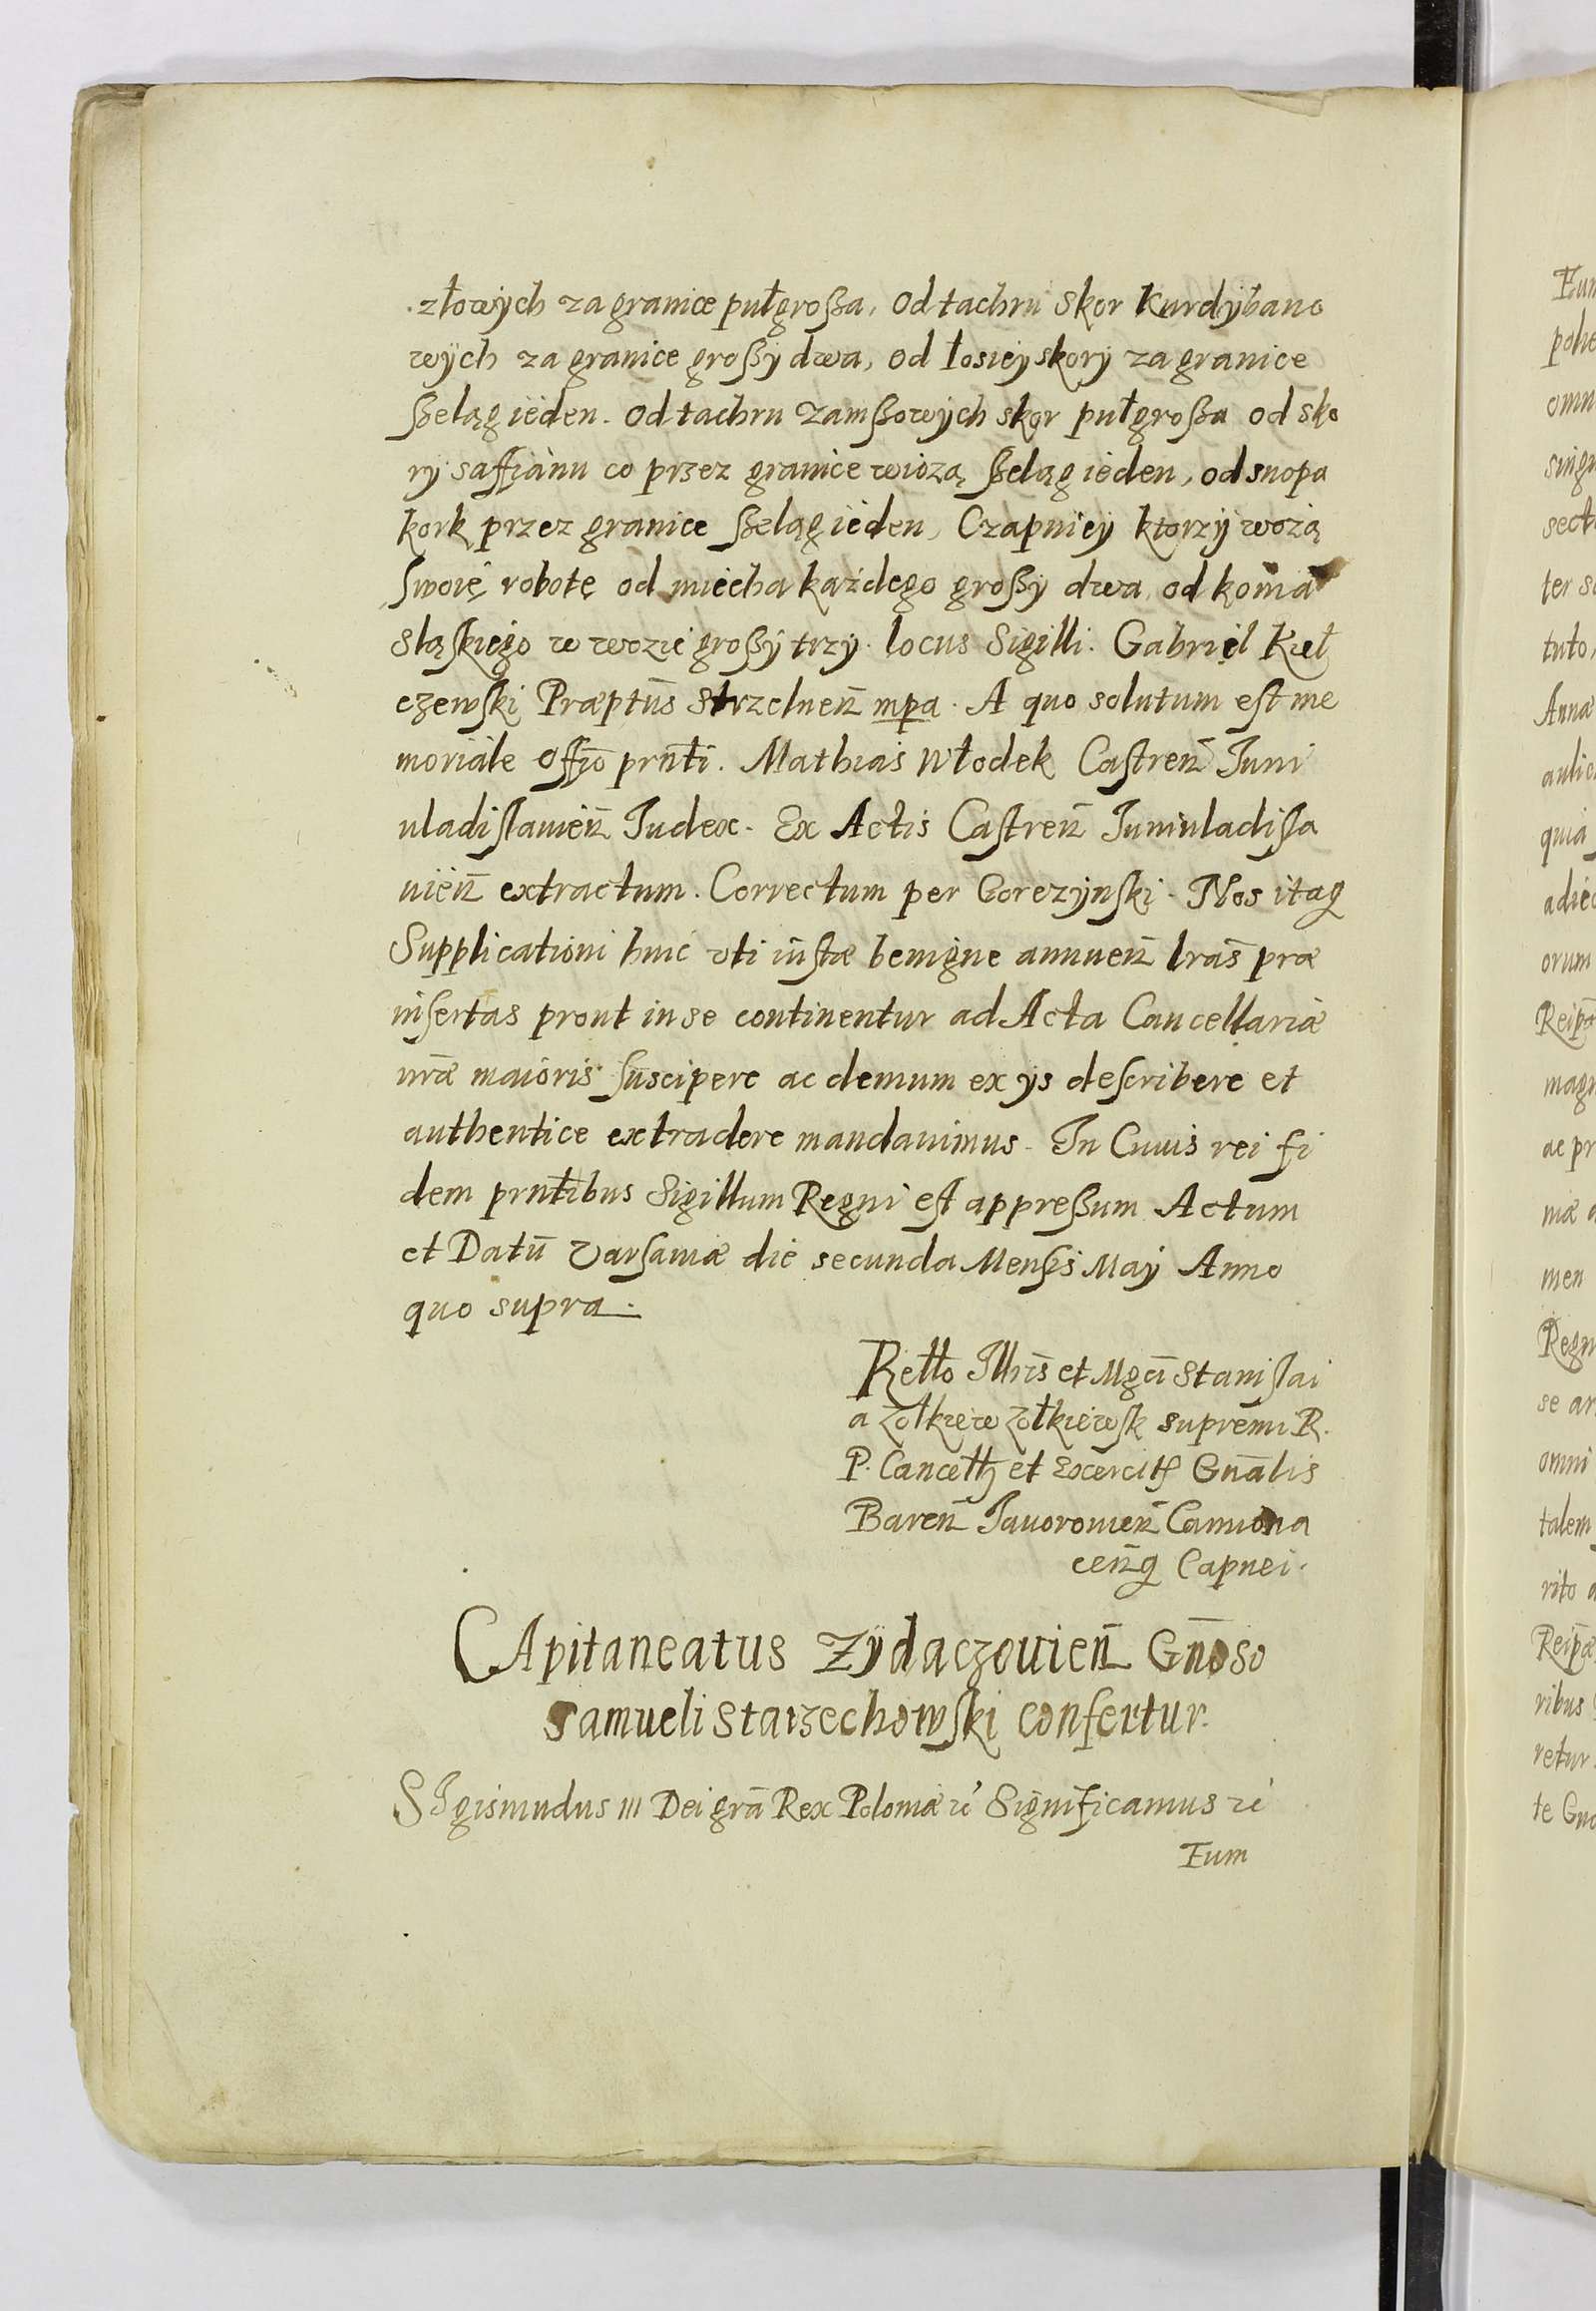 złowych za granice pułgroßa, od tachru skor kurdÿbano
wÿch za granice großÿ dwa, od łosiey skorÿ za granice
ßeląg ieden. Od tachru zamßowÿch skor pułgroßa od sko
rÿ saffianu co przez granice wiozą ßeląg ieden, od snopa
kork przez granice ßeląg ieden, Czapniey ktorzÿ wożą
swoię robotę od miecha każdego großÿ dwa, od koma
sląskiego w wozie großÿ trzy. locus Sigilli. Gabriel Kieł
czewski Præptus̄ Strzelnen̄ mpa. A quo solutum est me
moriale offīo prn̄ti. Mathias Włodek Castren̄ Juni
uladislauien̄ Judex. Ex Actis Castren̄ Juniuladisla
uien̄ extractum. Correctum per Gorczÿnski. Nos itaq
Supplicationi huic vti iustæ benigne annuen̄ lrās præ
insertas prout in se continentur ad Acta Cancellariæ
nr̄æ maioris suscipere ac demum ex ys describere et
authentice extradere mandauimus. In Cuius rei fi
dem prn̄tibus Sigillum Regni est appreßum Actum
et Datū Varsauiæ die secunda Mensis Maÿ Anno
quo supra.
Retto Illris̄ et Mgci̅ Stanislai
a Zołkiew Zołkiewsk supremi R.
P. Cancell et Exercit Gnālis
Baren̄ Jauorouien̄ Camiona
cen̄q Capnei.
CApitaneatus Zÿdaczouien̄ Gn̄oso
Samueli Starzechowski confertur.
SIgismudus III Dei grā Rex Poloniæ &c Significamus &c
Eum
Eum
omn
sect
ter s
tuto,
Annæ
quia
adiec
orum
Reipā
magn
ac pr
men
Regn
se ar
omni
talem
rito a
ribus
retur.
te Gno